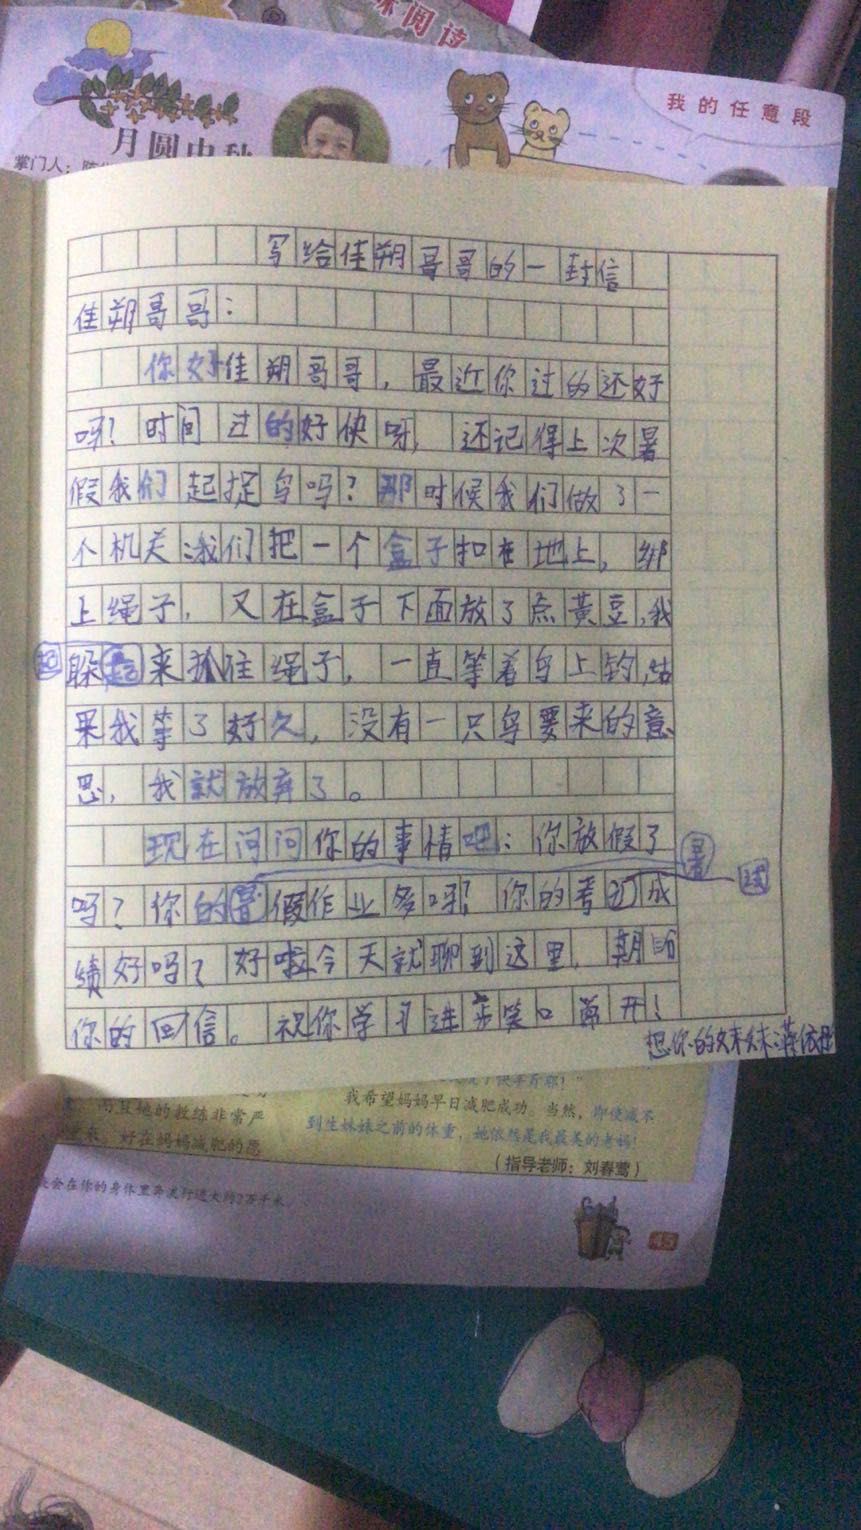 味阅读
我的任意段
月圆中秋
掌门人：
写给佳朔哥哥的一封信
佳朔哥哥：
你好佳朔哥哥，最近你过的还好
吗？时间过的好快呀，还记得上次暑
假我们起捉鸟吗？那时候我们做了一
个机关：我们把一个盒子扣在地上，绑
上绳子，又在盒子下面放了点黄豆，我
躲起来抓住绳子，一直等着鸟上钓，结
果我等了好久，没有一只鸟要来的意
思，我就放弃了。
现在问问你的事情吧：你放假了
吗？你的暑假作业多吗？你的考试成
绩好吗？好啦今天就聊到这里，期盼
你的回信。祝你学习进步笑口常开！
想你的妹妹：
而且她的教练非常严
来。好在妈妈减肥的愿
我希望妈妈早日减肥成功。当然，即使减不
到生妹妹之前的体重，她依然是我最美的老妈！
（指导老师：刘春莺）
会在你的身体里奔流行进大约2万千米。
45